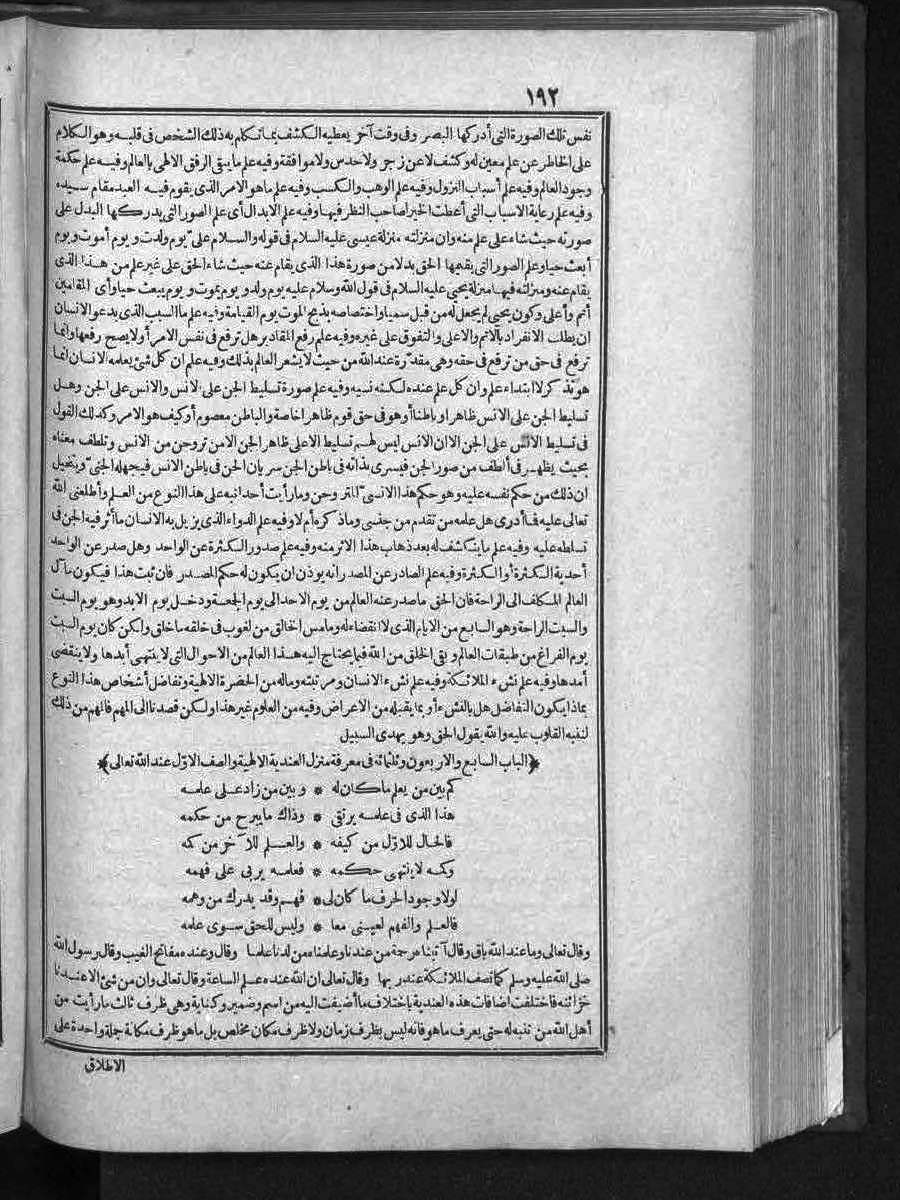 ١٩٢
نفس تلك الصورة التى أدركها البصر وفى وقت آخر يعطيه الكشف بما تكلم به ذلك الشخص فى قلبه وهو الكلام
على الخاطر عن علم معين له وكشف لا عن زجر ولا حدس ولا موافقة وفيه علم ما يبقى الرفق الالهى بالعالم وفيه علم حكمة
وجود العالم وفيه علم أسباب النزول وفيه علم الوهب والكسب وفيه علم ما هو الامر الذى يقوم فيه العبد مقام سيده
وفيه علم رعاية الاسباب التى أعطت الخير لصاحب النظر فيها وفيه علم الابدال أى علم الصور التى يدركها البدل على
صورته حيث شاء على علم منه وان منزلته منزلة عيسى عليه السلام فى قوله والسلام علىّ يوم ولدت ويوم أموت ويوم
أبعث حيا وعلم الصور التى يقيمها الحق بدلا من صورة هذا الذى يقام عنه حيث شاء الحق على غير علم من هذا الذى
يقام عنه ومنزلته فيها منزلة يحيى عليه السلام فى قول الله وسلام عليه يوم ولد ويوم يموت ويوم يبعث حيا وأى المقامين
أتم وأعلى وكون يحيى لم يجعل له من قبل سميا واختصاصه بذبح الموت يوم القيامة وفيه علم ما السبب الذى يدعو الانسان
ان يطلب الانفراد بالاتم والاعلى والتفوق على غيره وفيه علم رفع المقادير هل ترفع فى نفس الامر أو لا يصح رفعها وانما
ترفع فى حق من ترفع فى حقه وهى مقدّرة عند الله من حيث لا يشعر العالم بذلك وفيه علم ان كل شئ يعلمه الانسان انما
هو تذكر لا ابتداء علم وان كل علم عنده لكنه نسيه وفيه علم صورة تسليط الجن على الانس والانس على الجن وهل
تسليط الجن على الانس ظاهرا وباطنا أو هو فى حق قوم ظاهر اخاصة والباطن معصوم أو كيف هو الامر وكذلك القول
فى تسليط الانس على الجن الا ان الانس ليس لهم تسليط الا على ظاهر الجن الا من تروحن من الانس وتلطف معناه
بحيث يظهر فى ألطف من صور الجن فيسرى بذاته فى باطن الجن سريان الجن فى باطن الانس فيجهله الجنىّ ويتخيل
ان ذلك من حكم نفسه عليه وهو حكم هذا الانسىّ المتروحن وما رأيت أحدا نبه على هذا النوع من العلم وأطلعنى الله
تعالى عليه فما أدرى هل علمه من تقدم من جنسى وما ذكره أم لا وفيه علم الدواء الذى يزيل به الانسان ما أثر فيه الجن فى
تسلطه عليه وفيه علم ما ينكشف له بعد ذهاب هذا الاثر منه وفيه علم صدور الكثرة عن الواحد وهل صدر عن الواحد
أحدية الكثرة أو الكثرة وفيه علم الصادر عن المصدر انه يوذن ان يكون له حكم المصدر فان ثبت هذا فيكون مآ كل
العالم المكلف الى الراحة فان الحق ما صدر عنه العالم من يوم الاحد الى يوم الجمعة ودخل يوم الابد وهو يوم السبت
والسبت الراحة وهو السابع من الايام الذى لا انقضاء له وما مس الخالق من لغوب فى خلقه ما خلق ولكن كان يوم السبت
يوم الفراغ من طبقات العالم وبقى الخلق من الله فيما يحتاج اليه هذا العالم من الاحوال التى لا ينتهى أبدها ولا ينقضى
أمدها وفيه علم نشء الملائكة وفيه علم نشء الانسان ومرتبته وماله من الحضرة الالهية وتفاضل أشخاص هذا النوع
بماذا يكون التفاضل هل بالنشء أو بما يقبله من الاعراض وفيه من العلوم غير هذا ولكن قصدنا الى المهم فالمهم من ذلك
لننبه القلوب عليه والله يقول الحق وهو يهدى السبيل
﴿الباب السابع والاربعون وثلثمائة فى معرفة منزل العندية الالهية والصف الاوّل عند الله تعالى﴾
كم بين من يعلم ما كان له * وبين من زاد على علمه
هذا الذى فى علمه يرتقى * وذاك ما يبرح من حكمه
فالحال للاوّل من كيفه * والعلم للآخر من كمه
وكمه لا ينتهى حكمه * فعلمه يربى على فهمه
لولا وجود الحرف ما كان لى * فهم وقد يدرك من وهمه
فالعلم والفهم لعينى معا * وليس للحق سوى علمه
وقال تعالى وما عند الله باق وقال آتيناه رحمة من عندنا وعلمناه من لدنا علما وقال وعنده مفاتح الغيب وقال رسول الله
صلى الله عليه وسلم كما تصف الملائكة عند ربها وقال تعالى ان الله عنده علم الساعة وقال تعالى وان من شئ الا عندنا
خزائنه فاختلفت اضافات هذه العندية باختلاف ما أضيفت اليه من اسم وضمير وكناية وهى ظرف ثالث ما رأيت من
أهل الله من تنبه له حتى يعرف ما هو فانه ليس بظرف زمان ولا ظرف مكان مخلص بل ما هو ظرف مكانة جملة واحدة على
الاطلاق